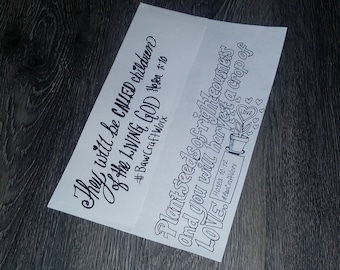 They will be CALLED children
of the LIVING GOD Hosea 1:10
#BawCraftWorx
Plant seeds of righteousness
and you will harvest a crop of
LOVE! Hosea 10:12